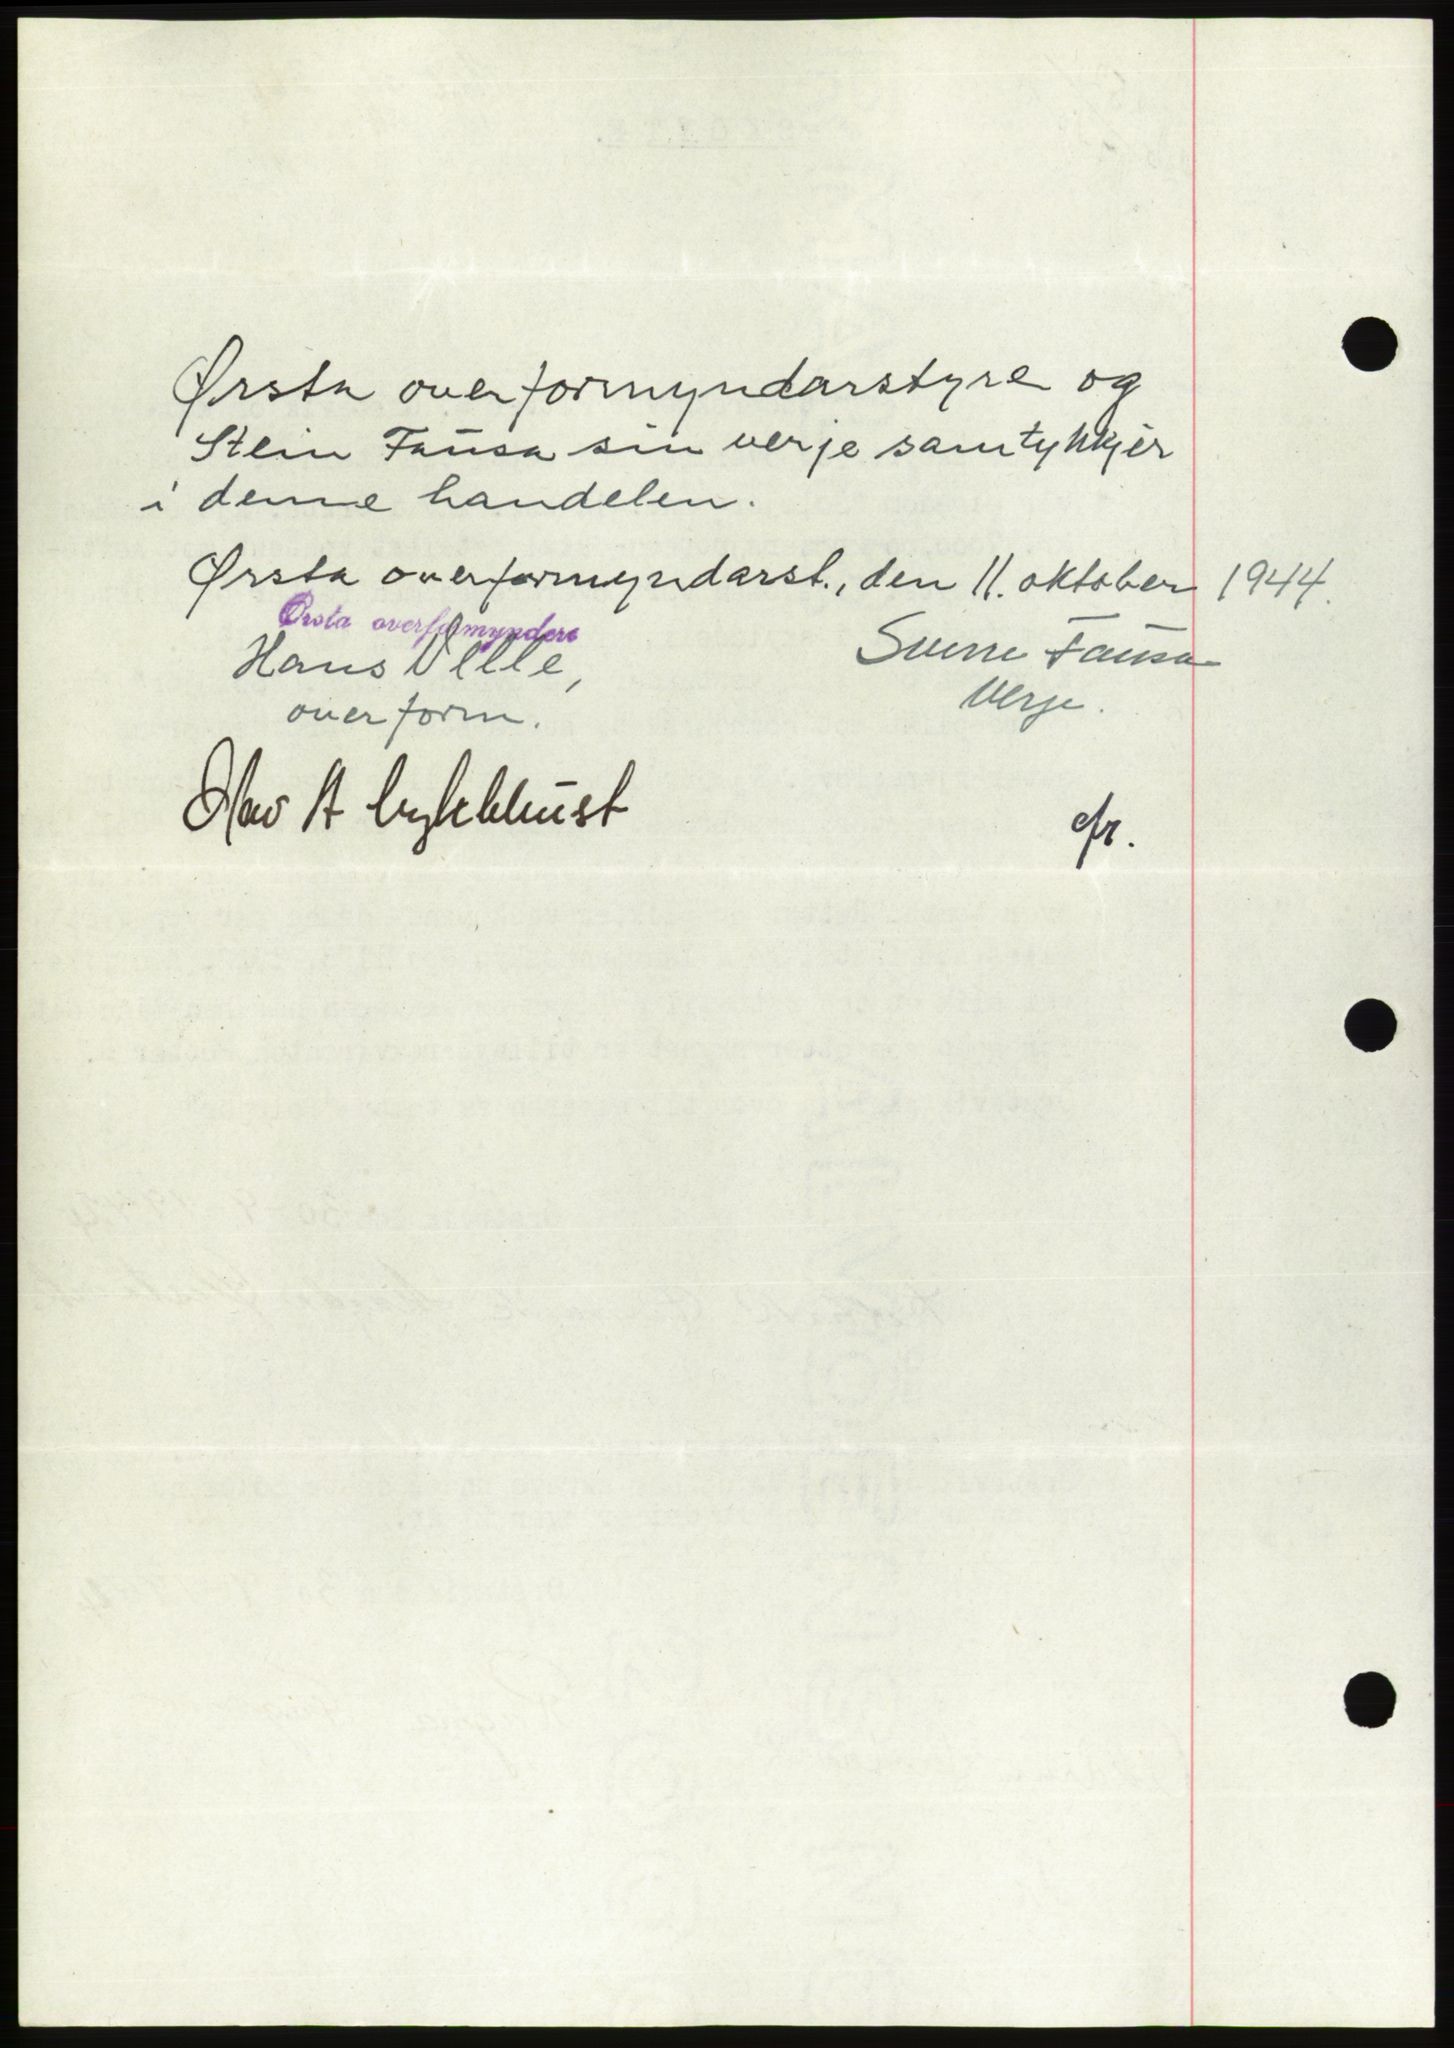 Ørsta overformyndarstyre og
Stein Fausa sin verje samtykkjer
i denne handelen.
Ørsta overformyndarst., den 11. oktober 1944.
Ørsta overformyndere
Hans Ulle,
overform.
Sverre Fausa
Verje.
Olav A Lykkhust